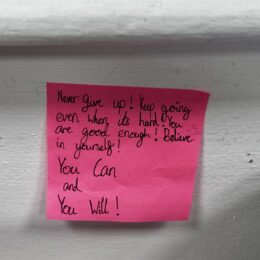 Never give up! Keep going
even when its hard! You
are good enough! Believe
in yourself!
You Can
and
You Will!